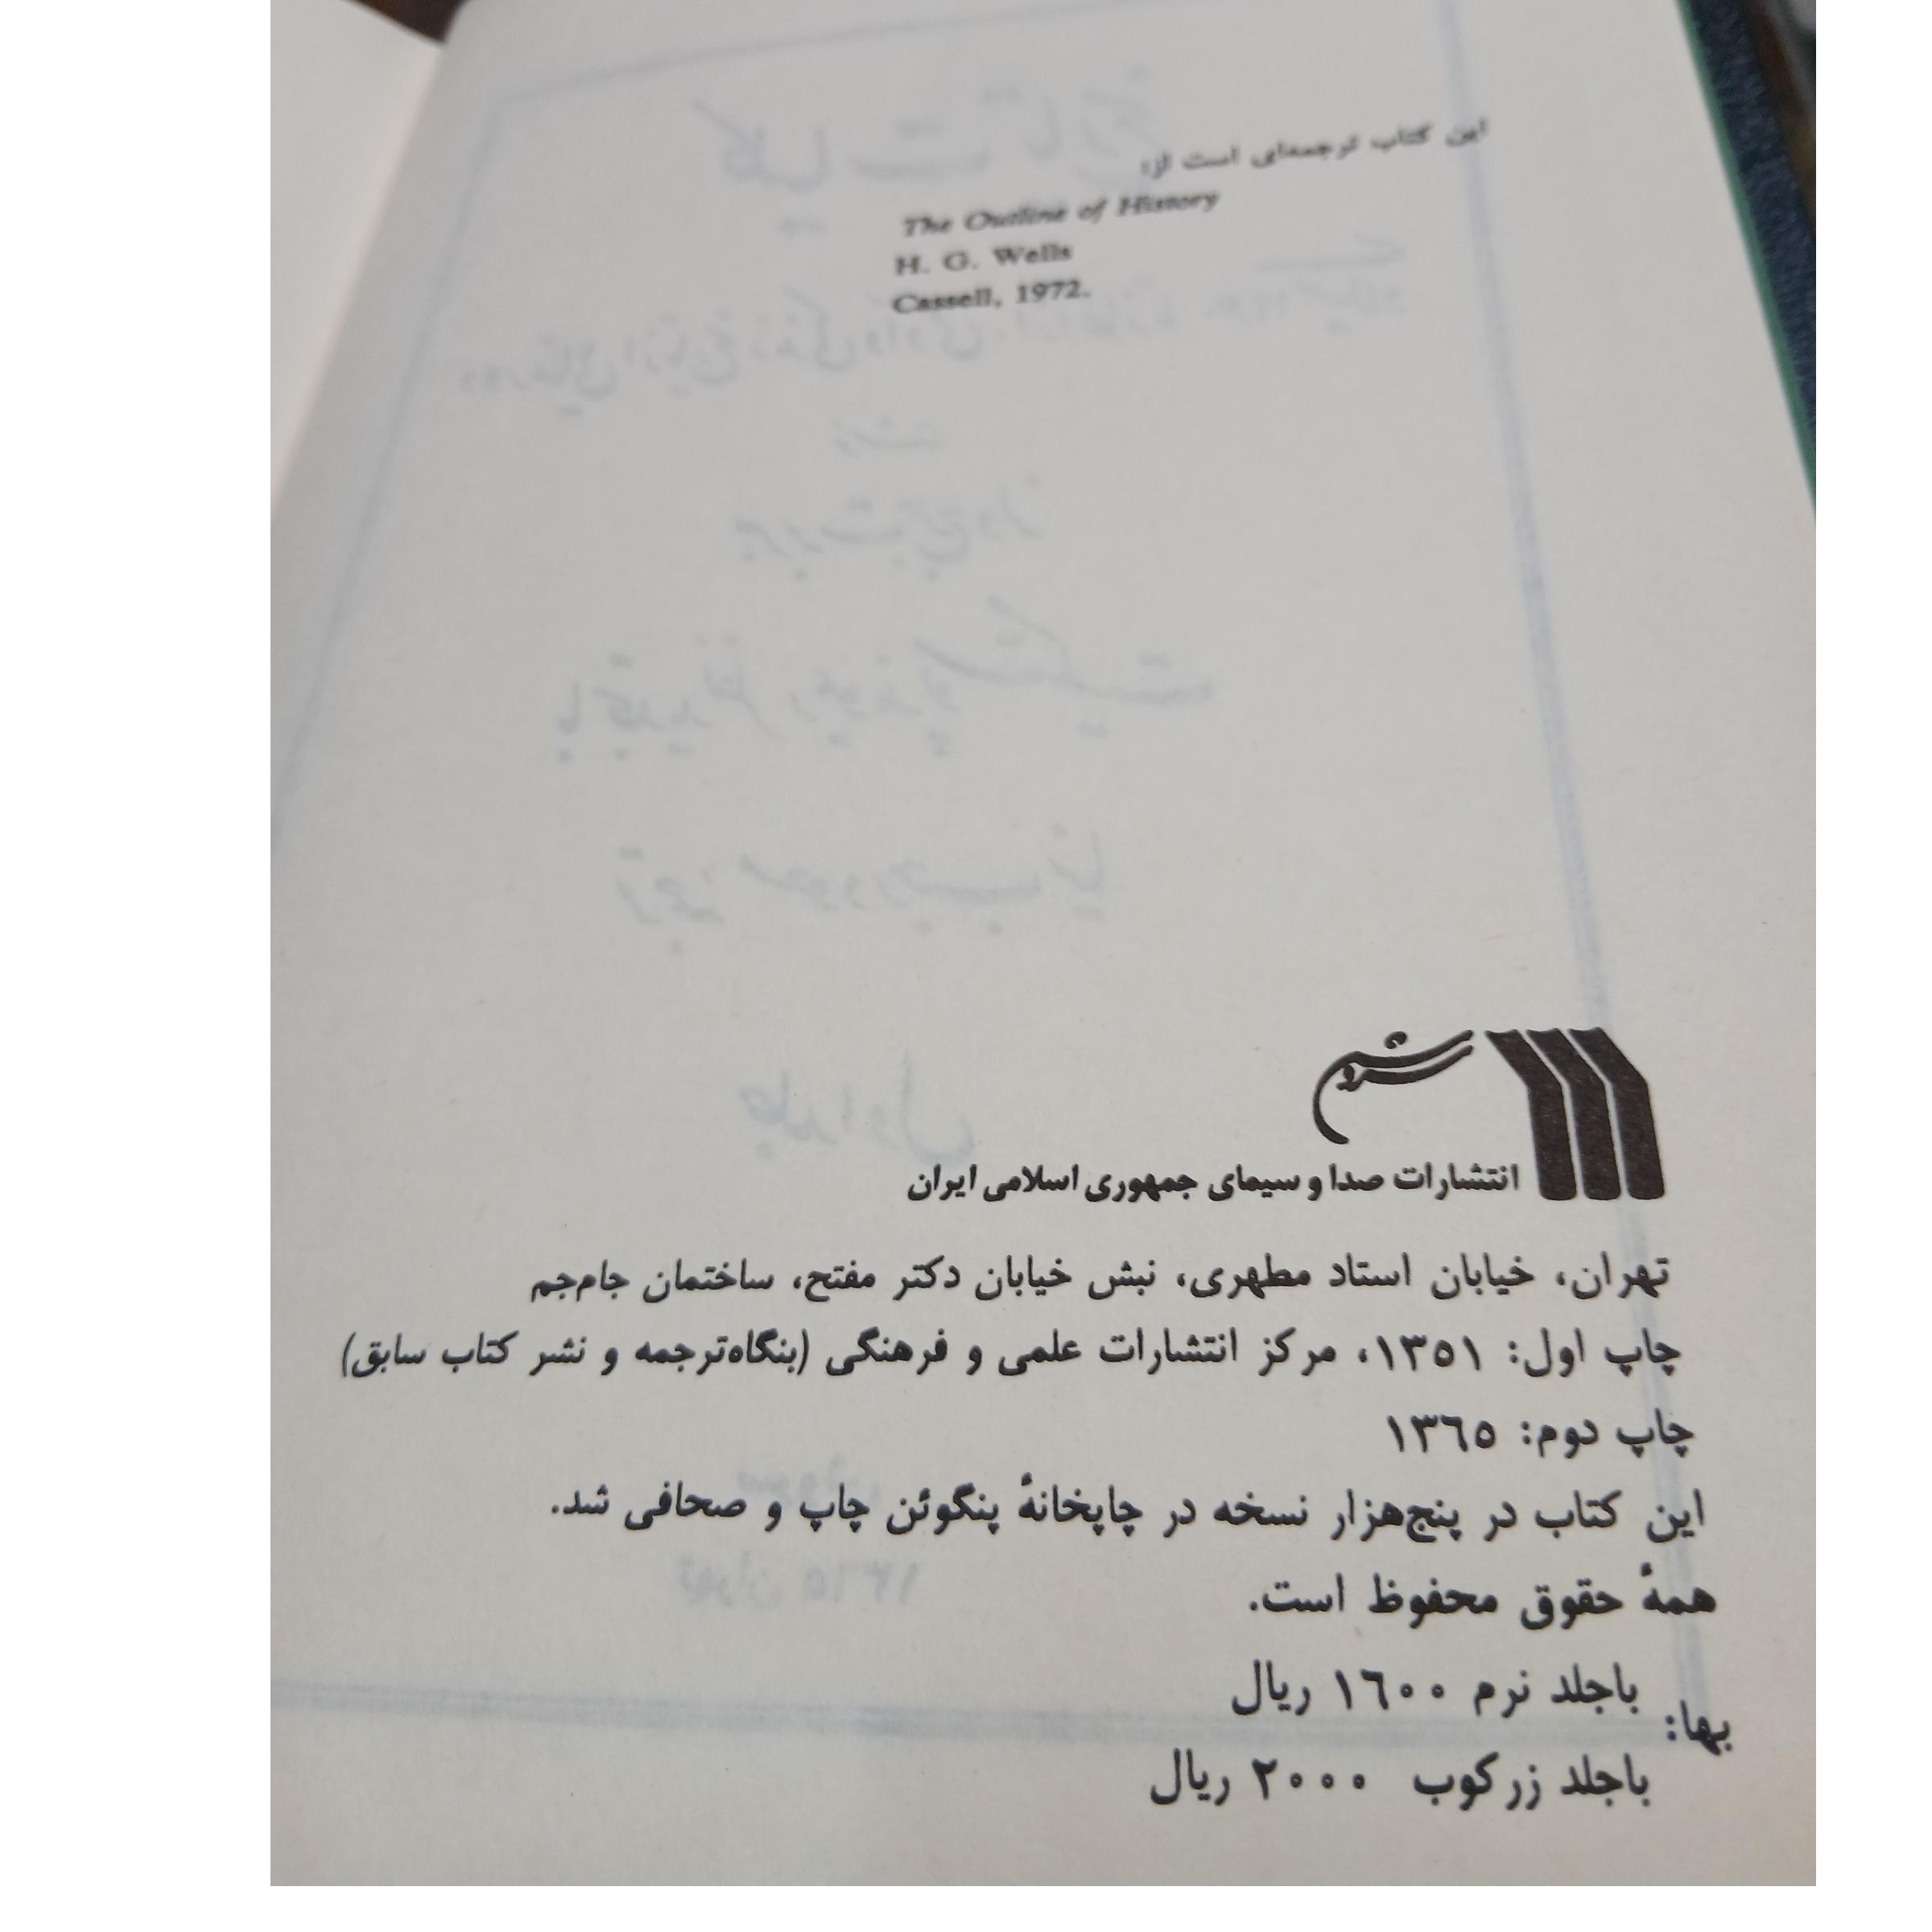 این کتاب ترجمه‌ای است از:
The Outline of History
H. G. Wells
Cassell, 1972.
سروش
انتشارات صدا و سیمای جمهوری اسلامی ایران
تهران، خیابان استاد مطهری، نبش خیابان دکتر مفتح، ساختمان جام‌جم
چاپ اول: ۱۳۵۱، مرکز انتشارات علمی و فرهنگی (بنگاه‌ترجمه و نشر کتاب سابق)
چاپ دوم: ۱۳٦۵
این کتاب در پنج‌هزار نسخه در چاپخانهٔ پنگوئن چاپ و صحافی شد.
همهٔ حقوق محفوظ است.
بها:
باجلد نرم ۱٦۰۰ ریال
باجلد زرکوب ۲۰۰۰ ریال